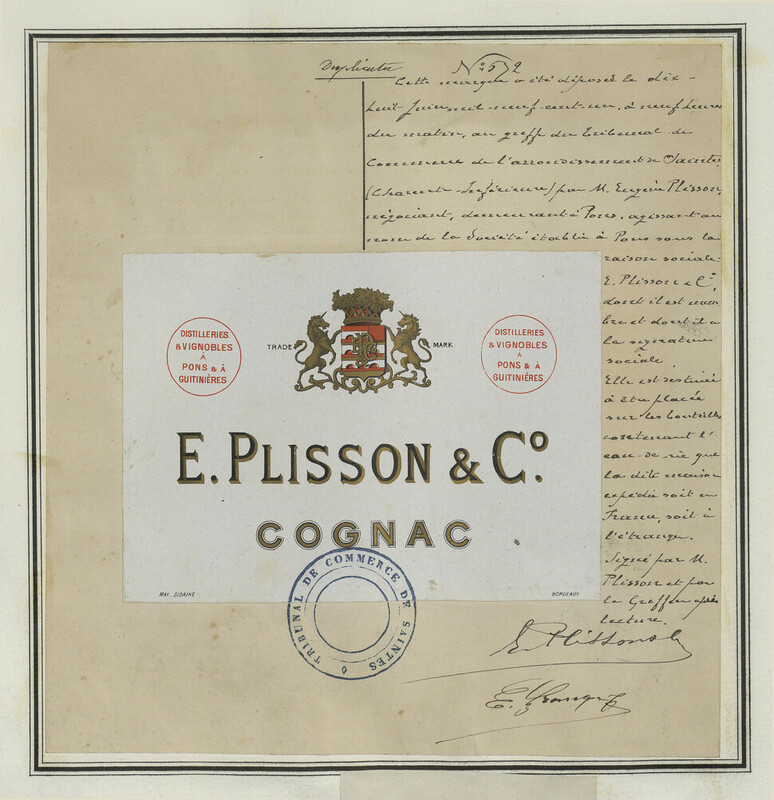 Duplicata
Cette marque a été déposée le dix-
huit Juin mil neuf cent un, à neuf heures
du matin, au greffe du Tribunal de
Commerce de l'arrondissement de Saintes
(Charente-Inférieure) par M. Eugène Plisson,
négociant, demeurant à Pons, agissant au
nom de la Société établie à Pons sous la
raison sociale:
E. Plisson & Cie,
dont il est mem
bre et dont il a
la signature
sociale.
Elle est destinée
à être placée
sur les bouteilles
contenant l'
eau-de-vie que
la dite maison
expédie soit en
France, soit à
l'étranger.
Signé par M.
Plisson et par
le Greffier après
lecture.
DISTILLERIES
& VIGNOBLES
À
PONS & À
GUITINIÈRES
TRADE MARK
DISTILLERIES
& VIGNOBLES
À
PONS & À
GUITINIÈRES
E. PLISSON & Cº.
COGNAC
MAX. SIDAINE
BORDEAUX
TRIBUNAL DE COMMERCE DE SAINTES
E. Plisson &